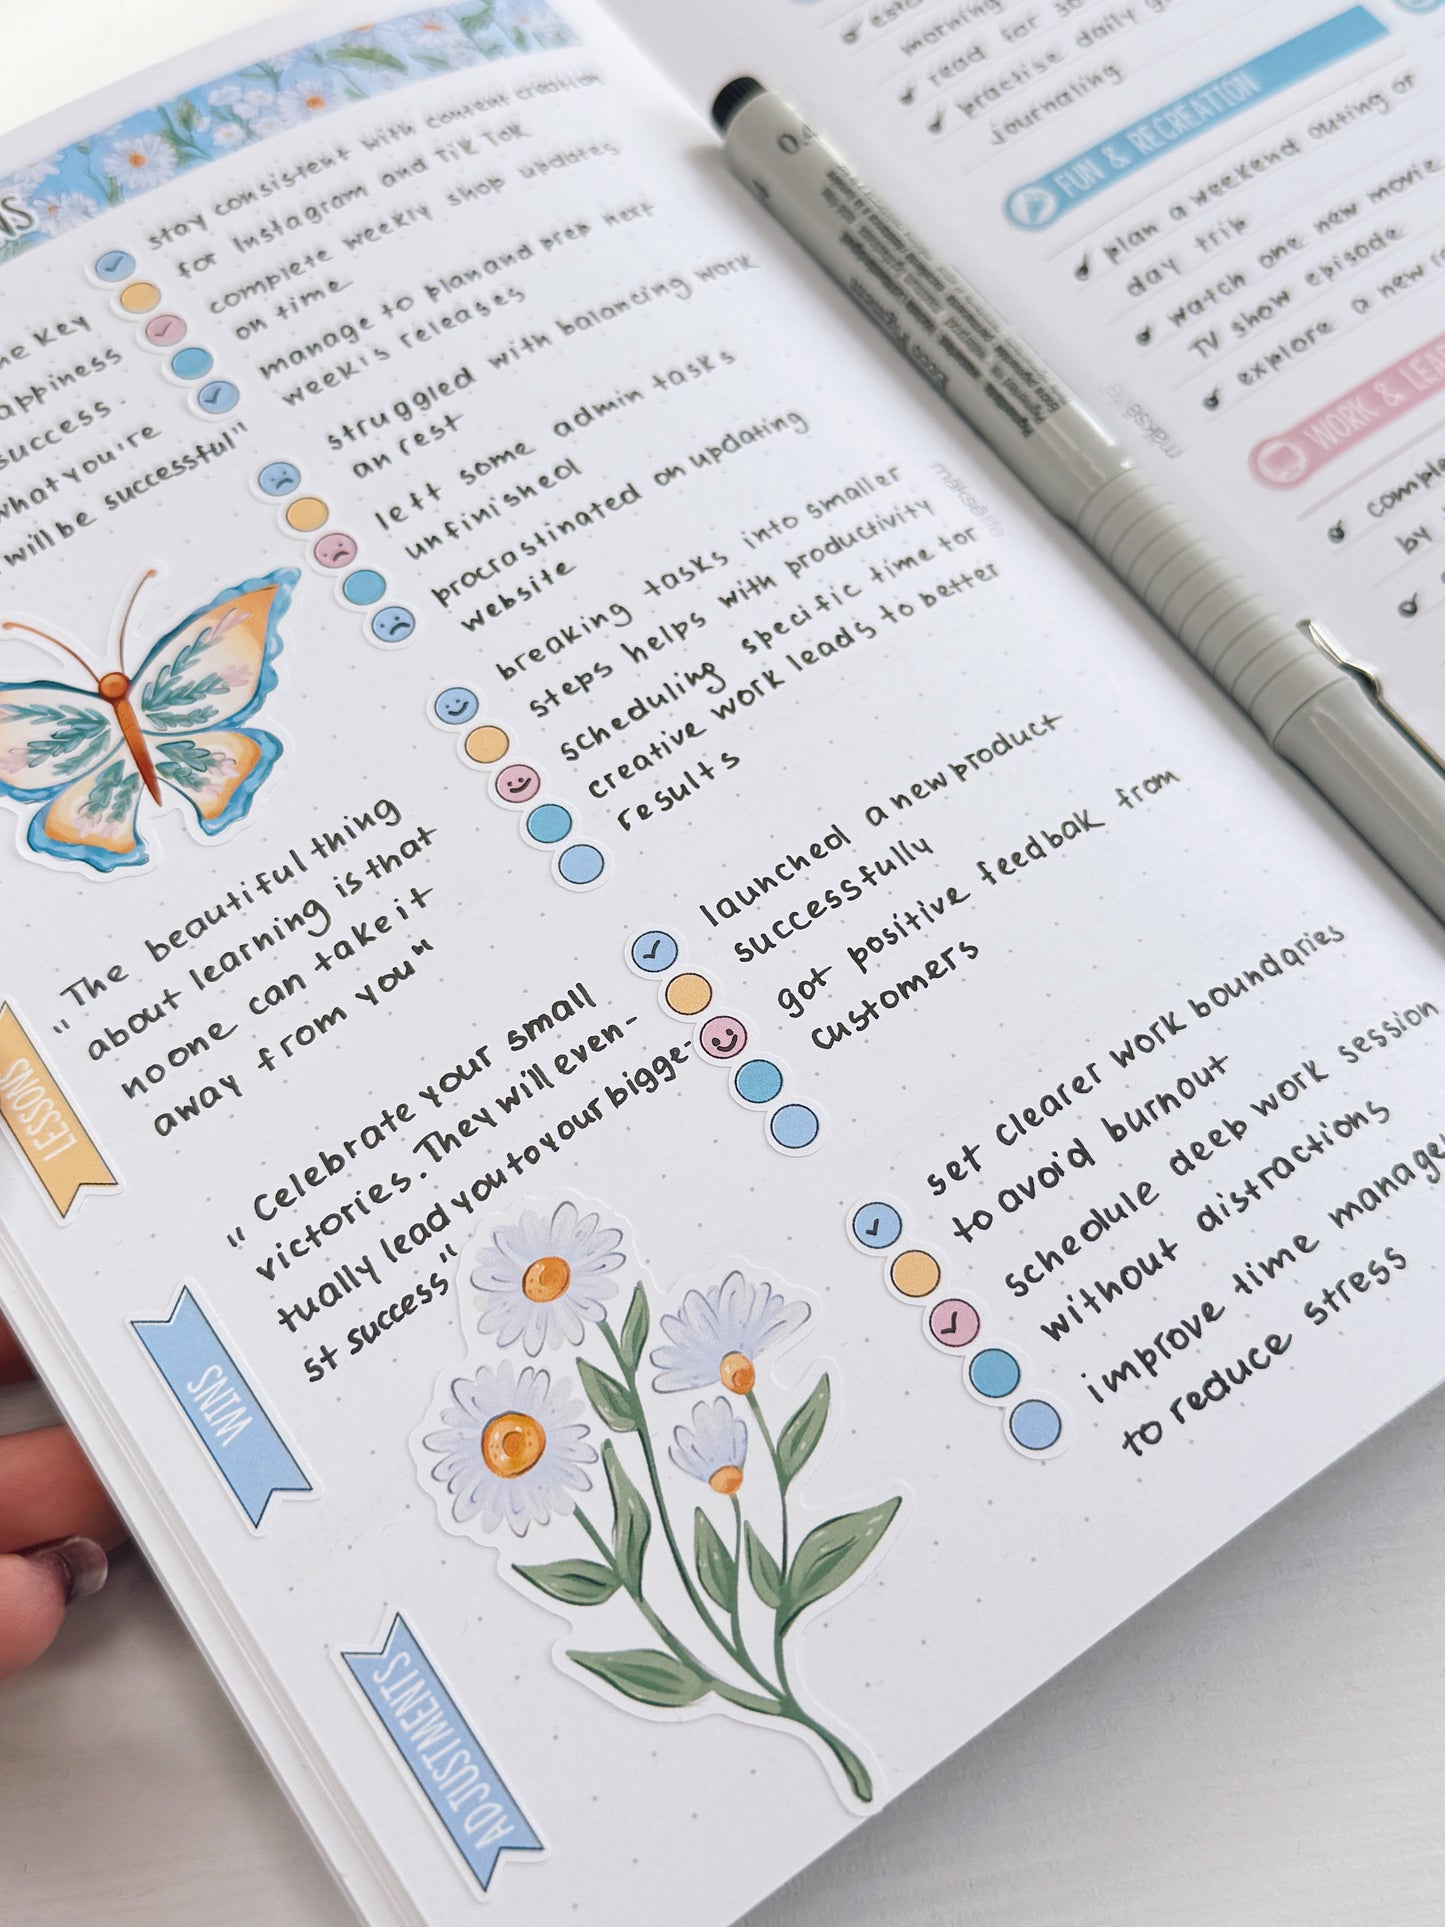 NS
stay consistent with content creation
for Instagram and TikTok
complete weekly shop updates
on time
manage to plan and prep next
weekls releases
key
success.
what you're
will be successful"
struggled with balancing work
an rest
left some admin tasks
unfinished
procrastinated on updating
website
breaking tasks into smaller
steps helps with productivity
scheduling specific time for
creative work leads to better
results
"The beautiful thing
about learning is that
no one can take it
away from you"
LESSONS
launched a new product
successfully
got positive feedbak from
customers
"Celebrate your small
victories. They will even-
tually lead you to your bigge-
st success"
WINS
set clearer work boundaries
to avoid burnout
schedule deep work session
without distractions
improve time manage
to reduce stress
ADJUSTMENTS
makselife
morning
read for 30
practise daily
journaling
FUN & RECREATION
plan a weekend outing or
day trip
watch one new movie
TV show episode
explore a new
WORK &
by
makselife